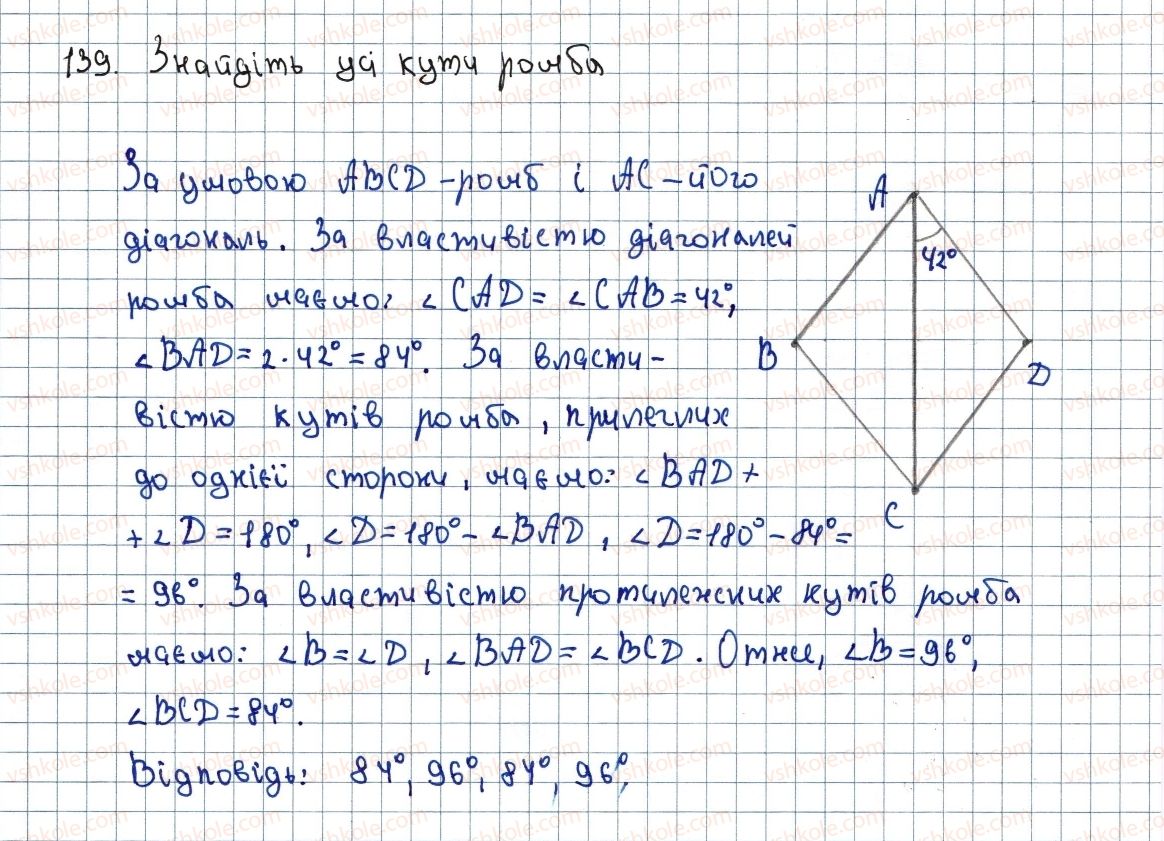 139. Знайдіть усі кути ромба
За умовою ABCD - ромб і AC - його
діагональ. За властивістю діагоналей
ромба маємо: ∠CAD = ∠CAB = 42°,
∠BAD = 2 · 42° = 84°. За власти-
вістю кутів ромба, прилеглих
до однієї сторони, маємо: ∠BAD +
+ ∠D = 180°, ∠D = 180° - ∠BAD, ∠D = 180° - 84° =
= 96°. За властивістю протилежних кутів ромба
маємо: ∠B = ∠D, ∠BAD = ∠BCD. Отже, ∠B = 96°,
∠BCD = 84°.
Відповідь: 84°, 96°, 84°, 96°.
A
42°
B
D
C
vshkole.com